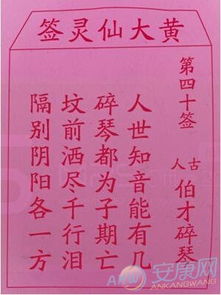 黄大仙灵签
第四十签
古人
伯才碎琴
人世知音能有几
碎琴都为子期亡
坟前洒尽千行泪
隔别阴阳各一方
安康网
ANKANGWANG